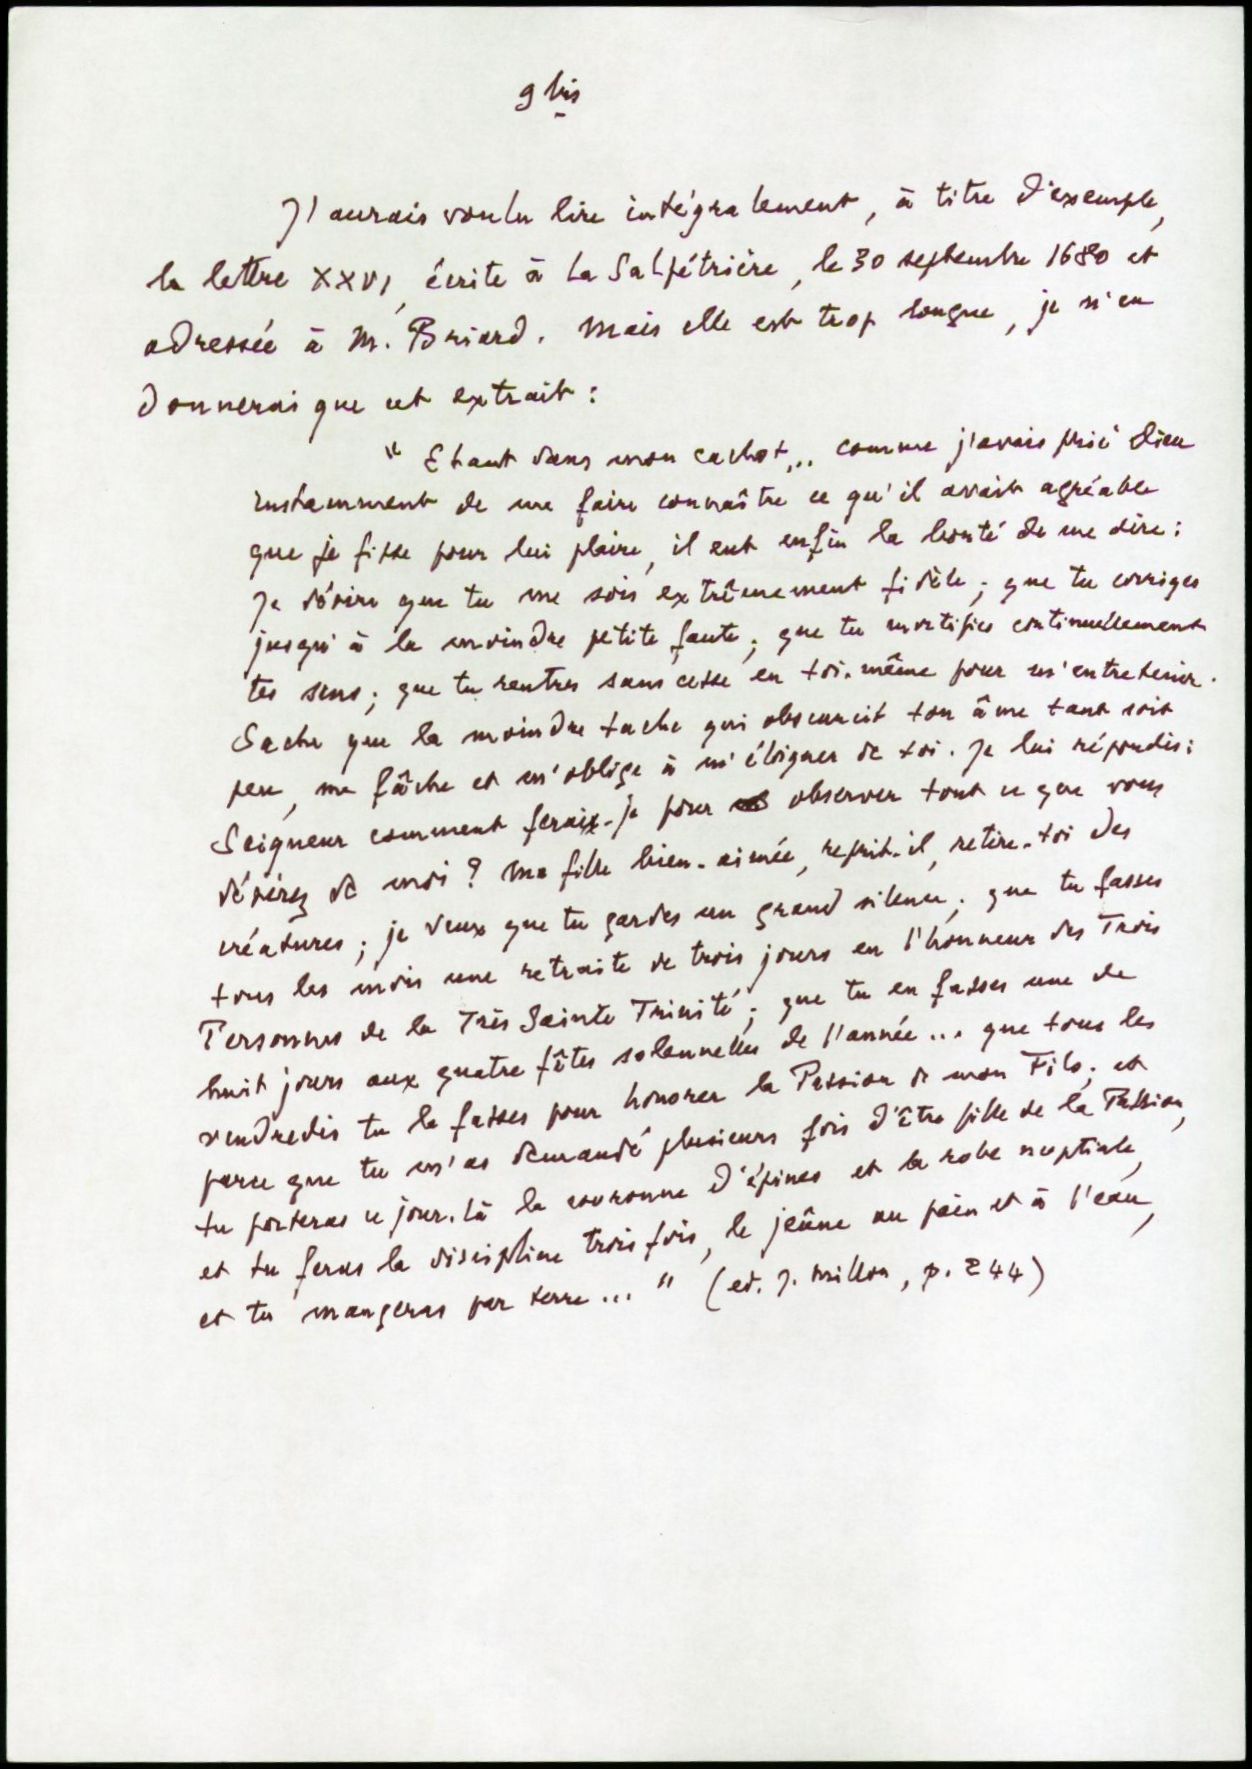 9 bis
J'aurais voulu lire intégralement, à titre d'exemple,
la lettre XXVI, écrite à La Salpétrière, le 30 septembre 1680 et
adressée à M. Briard. Mais elle est trop longue, je n'en
donnerai que cet extrait :
" Etant dans mon cachot... comme j'avais prié Dieu
instamment de me faire connaître ce qu'il avait agréable
que je fisse pour lui plaire, il eut enfin la bonté de me dire :
Je désire que tu me sois extrêmement fidèle ; que tu corriges
jusqu'à la moindre petite faute ; que tu mortifies continuellement
tes sens ; que tu rentres sans cesse en toi-même pour m'entretenir.
Sache que la moindre tache qui obscurcit ton âme tant soit
peu, me fâche et m'oblige à m'éloigner de toi. Je lui répondis :
Seigneur comment ferais-je pour observer tout ce que vous
désirez de moi ? Ma fille bien-aimée, reprit-il, retire-toi des
créatures ; je veux que tu gardes un grand silence ; que tu fasses
tous les mois une retraite de trois jours en l'honneur des Trois
Personnes de la Très Sainte Trinité ; que tu en fasses une de
huit jours aux quatre fêtes solennelles de l'année... que tous les
vendredis tu la fasses pour honorer la Passion de mon Fils ; et
parce que tu m'as demandé plusieurs fois d'être fille de la Passion,
tu porteras ce jour-là la couronne d'épines et la robe nuptiale,
et tu feras la discipline trois fois, le jeûne au pain et à l'eau,
et tu mangeras par terre... " (ed. J. Millon, p. 244)